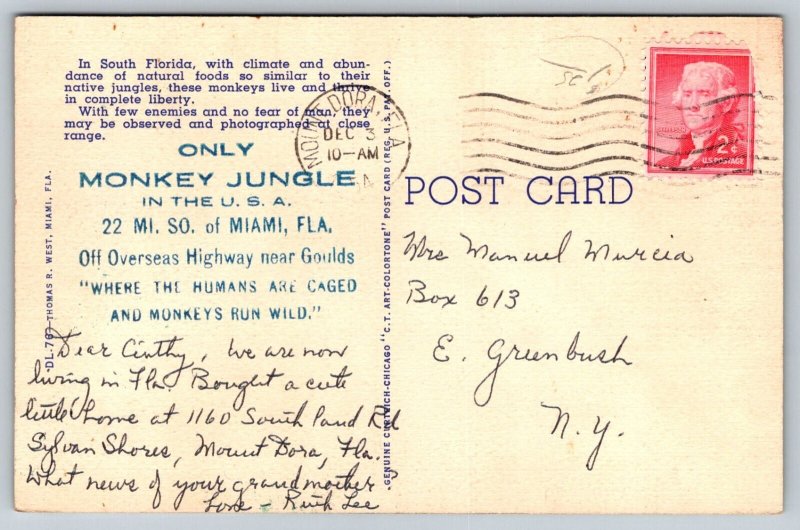 In South Florida, with climate and abun-
dance of natural foods so similar to their
native jungles, these monkeys live and thrive
in complete liberty.
With few enemies and no fear of man, they
may be observed and photographed at close
range.
ONLY
MONKEY JUNGLE
IN THE U.S.A.
22 MI. SO. of MIAMI, FLA.
Off Overseas Highway near Goulds
"WHERE THE HUMANS ARE CAGED
AND MONKEYS RUN WILD."
Dear Cinthy, We are now
living in Fla. Bought a cute
little home at 1160 South Rd
Sylvan Shores, Mount Dora, Fla.
What news of your grandmother?
Love - Ruth Lee
DL-767 THOMAS R. WEST, MIAMI, FLA.
GENUINE CURTEICH-CHICAGO "C.T. ART-COLORTONE" POST CARD (REG. U.S. PAT. OFF.)
MOUNT DORA, FLA.
DEC 3
10-AM
2¢
U.S. POSTAGE
POST CARD
Mrs Manuel Murcia
Box 613
E. Greenbush
N.Y.